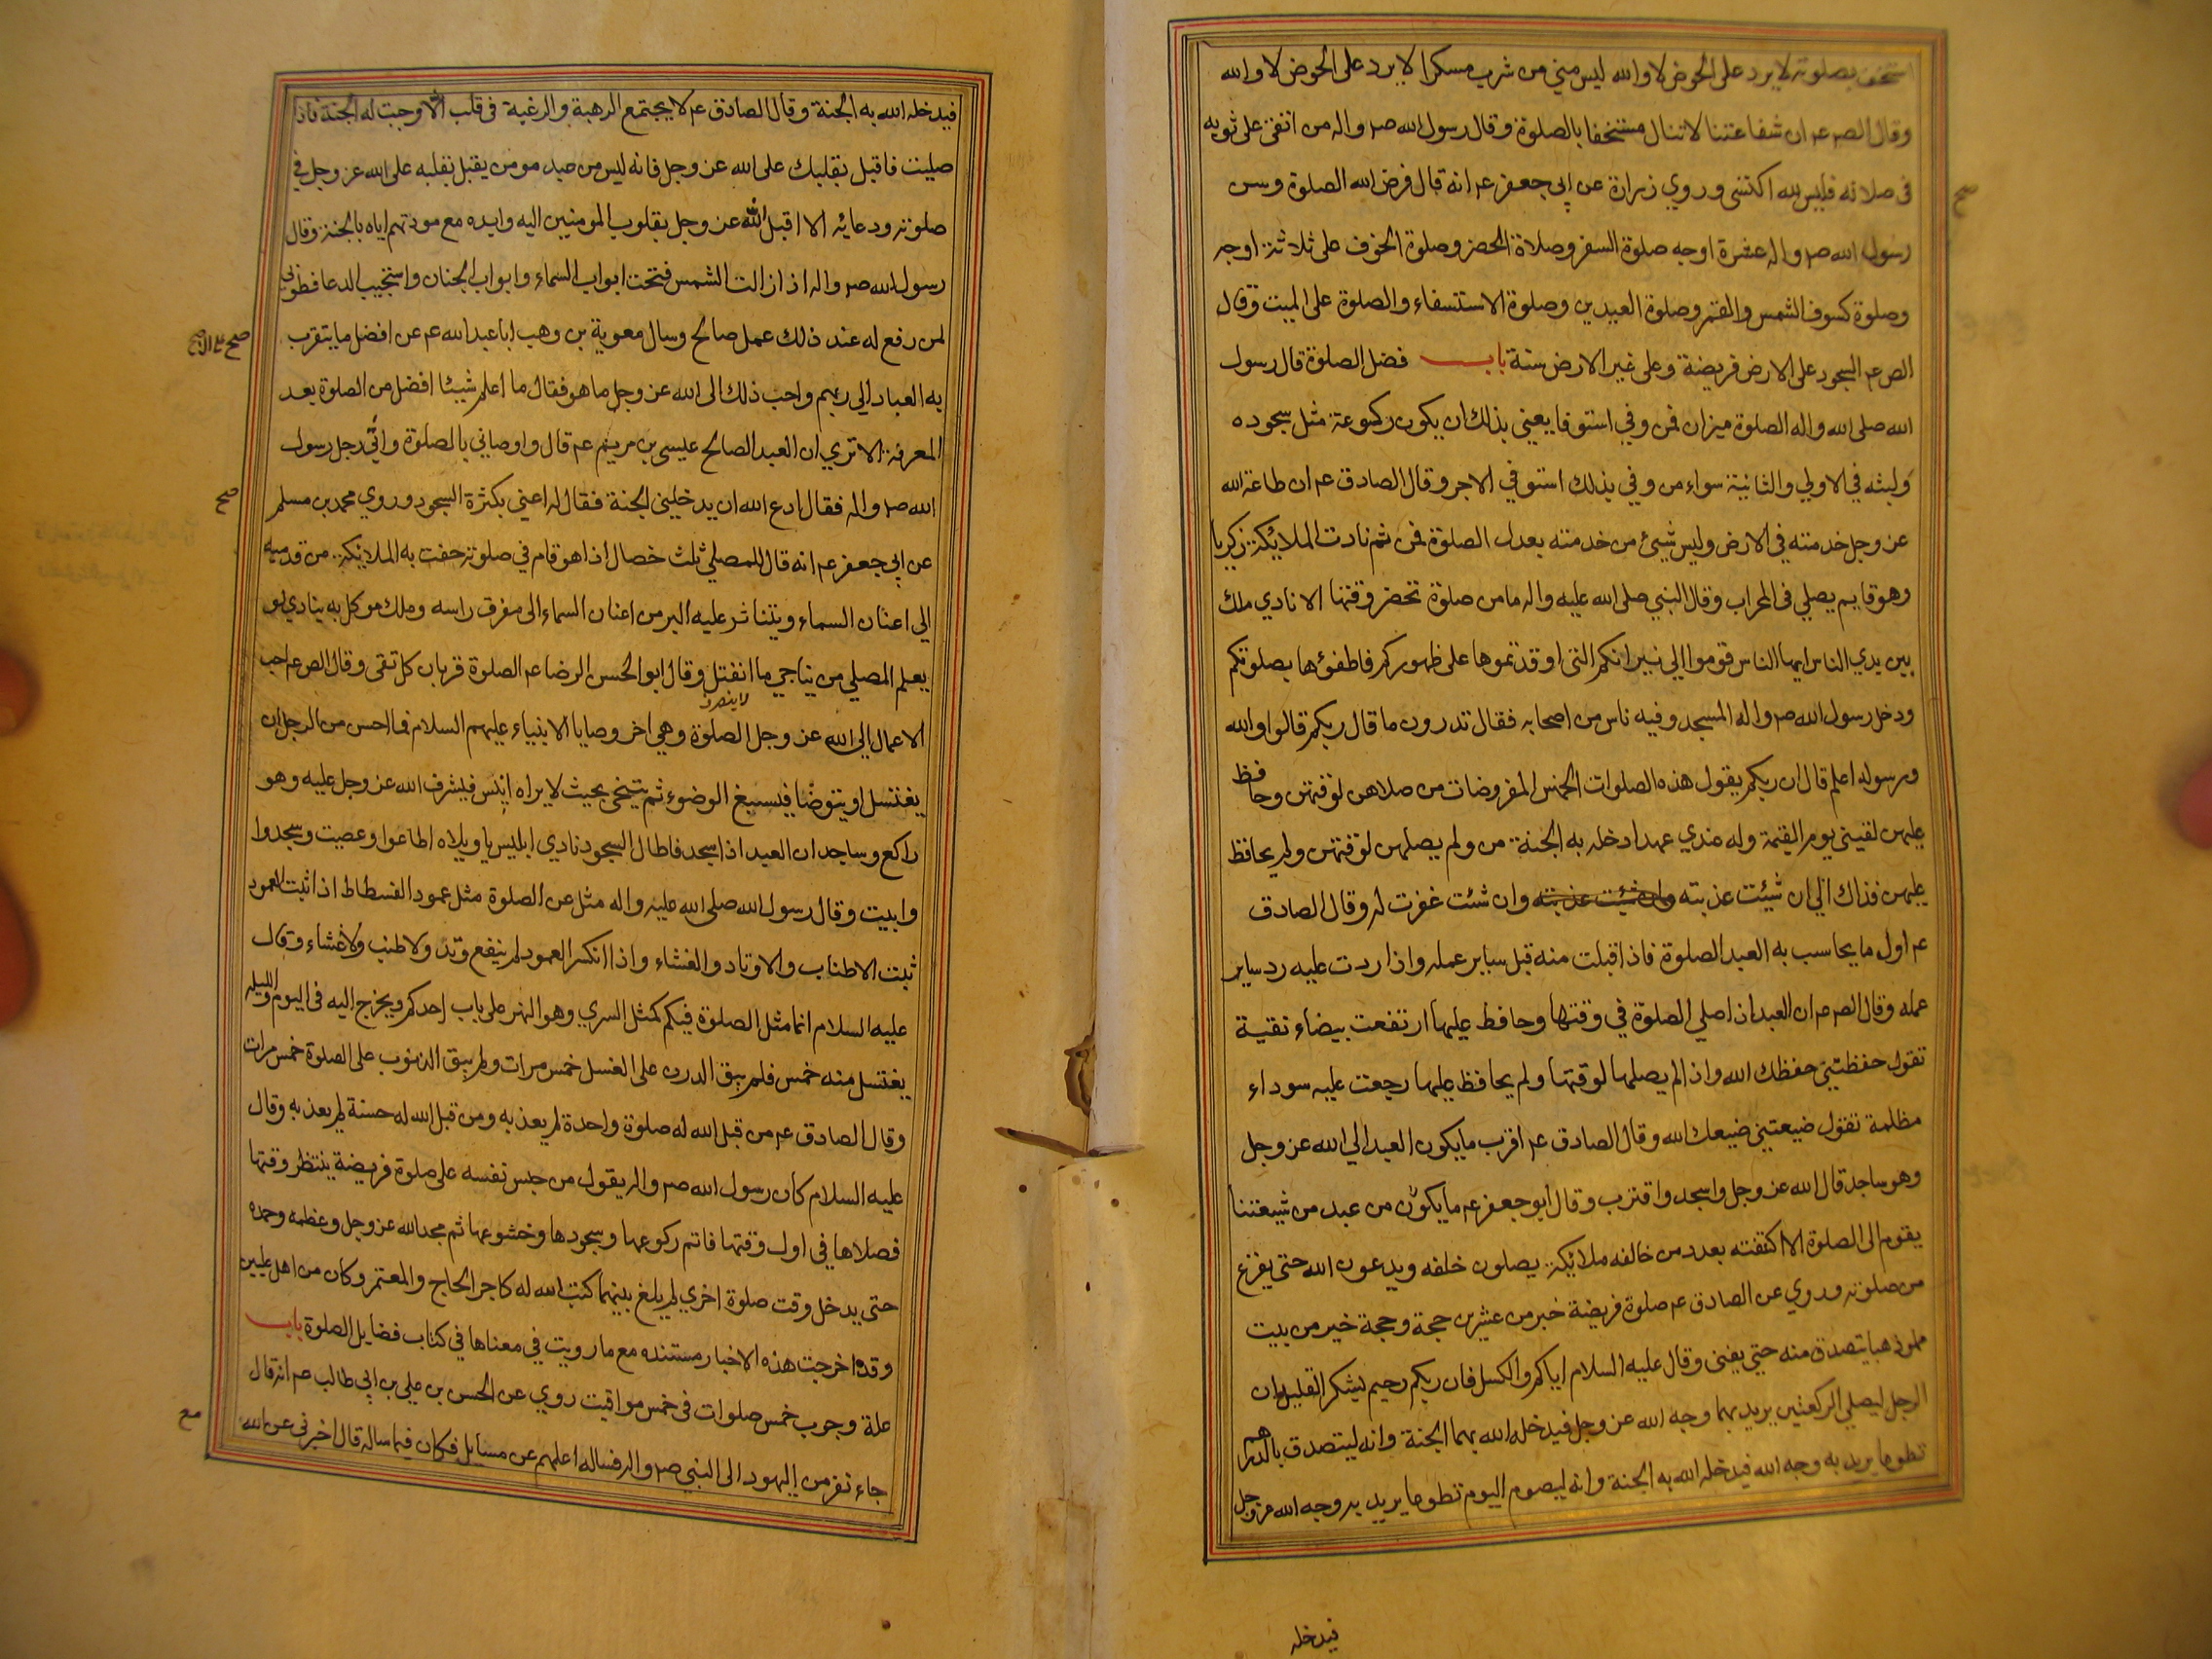 استخف بصلوته لا يرد على الحوض لا والله ليس مني من شرب مسكرا لا يرد على الحوض لا والله
وقال الص عم ان شفاعتنا لا تنال مستخفا بالصلوة وقال رسول الله صم واله من اتقى على ثوبه
في صلاته فليس لله اكتسى وروي زرارة عن ابي جعفر عم انه قال فرض الله الصلوة وسن
رسول الله صم واله عشرة اوجه صلوة السفر وصلاة الحضر وصلوة الخوف على ثلاثة اوجه
وصلوة كسوف الشمس والقمر وصلوة العيدين وصلوة الاستسقاء والصلوة على الميت وقال
الص عم السجود على الارض فريضة وعلى غير الارض سنة باب فضل الصلوة قال رسول
الله صلى الله واله الصلوة ميزان فمن وفي استوفا يعني بذلك ان يكون ركوعه مثل سجوده
ولبثه في الاولي والثانية سواء من وفي بذلك استوفي الاجر وقال الصادق عم ان طاعة الله
عن وجل خدمته في الارض وليس شيئ من خدمته يعدل الصلوة فمن ثم نادت الملائكة زكريا
وهو قايم يصلي في المحراب وقال النبي صلى الله عليه واله ما من صلوة تحضر وقتها الا نادي ملك
بين يدي الناس ايها الناس قوموا الي نيرانكم التي اوقدتموها على ظهوركم فاطفؤها بصلوتكم
ودخل رسول الله صم واله المسجد وفيه ناس من اصحابه فقال تدرون ما قال ربكم قالوا والله
ورسوله اعلم قال ان ربكم يقول هذه الصلوات الخمس المفروضات من صلاهن لوقتهن وحافظ
عليهن لقيني يوم القيمة وله عندي عهد ادخله به الجنة من ولم يصلهن لوقتهن ولم يحافظ
عليهن فذاك الي ان شيئت عذبته وان شئت عذبته وان شئت غفرت له وقال الصادق
عم اول ما يحاسب به العبد الصلوة فاذا قبلت منه قبل ساير عمله واذا ردت عليه رد ساير
عمله وقال الص عم ان العبد اذا صلي الصلوة في وقتها وحافظ عليها ارتفعت بيضاء نقية
تقول حفظتني حفظك الله واذا لم يصلها لوقتها ولم يحافظ عليها رجعت عليه سوداء
مظلمة تقول ضيعتني ضيعك الله وقال الصادق عم اقرب ما يكون العبد الي الله عز وجل
وهو ساجد قال الله عز وجل واسجد واقترب وقال ابو جعفر عم ما يكون من عبد من شيعتنا
يقوم الى الصلوة الا اكتنفته بعدد من خالفه ملائكة يصلون خلفه ويدعون الله حتى يفرغ
من صلوته وروي عن الصادق عم صلوة فريضة خير من عشرين حجة وحجة خير من بيت
مملو ذهبا يتصدق منه حتي يفنى وقال عليه السلام اياكم والكسل فان ربكم رحيم يشكر القليل ان
الرجل ليصلي الركعتين يريد بهما وجه الله عز وجل فيدخله الله بهما الجنة وانه ليتصدق بالدرهم
تطوعا يريد به وجه الله فيدخله الله به الجنة وانه ليصوم اليوم تطوعا يريد به وجه الله عز وجل
فيدخله
صح
فيدخله الله به الجنة وقال الصادق عم لا يجتمع الرهبة والرغبة في قلب الا وجبت له الجنة فاذا
صليت فاقبل بقلبك على الله عز وجل فانه ليس من عبد مومن يقبل بقلبه على الله عز وجل في
صلوته ودعائه الا اقبل الله عز وجل بقلوب المومنين اليه وايده مع مودتهم اياه بالجنة وقال
رسول الله صم واله اذا زالت الشمس فتحت ابواب السماء وابواب الجنان واستجيب الدعا فطوبى
لمن رفع له عند ذلك عمل صالح وسال معوية بن وهب ابا عبد الله عم عن افضل ما يتقرب
به العباد الي ربهم واحب ذلك الى الله عز وجل ما هو فقال ما اعلم شيئا افضل من الصلوة بعد
المعرفة الا تري ان العبد الصالح عيسى بن مريم عم قال واوصاني بالصلوة واتي رجل رسول
الله صم واله فقال ادع الله ان يدخليني الجنة فقال له اعني بكثرة السجود وروي محمد بن مسلم
عن ابي جعفر عم انه قال للمصلي ثلث خصال اذا هو قام في صلوته حفت به الملائكة من قدميه
الي اعنان السماء ويتناثر عليه البر من اعنان السماء الى مفرق راسه وملك موكل به ينادي لو
يعلم المصلي من يناجي ما انفتل وقال ابو الحسن الرضا عم الصلوة قربان كل تقى وقال الص عم احب
الاعمال الي الله عز وجل الصلوة وهي اخر وصايا الانبياء عليهم السلام فما احسن من الرجل ان
يغتسل او يتوضا فيسبغ الوضوء ثم يتنحى بحيث لا يراه انيس فيشرف الله عز وجل عليه وهو
راكع وساجد ان العبد اذا سجد فاطال السجود نادي ابليس يا ويلاه اطاعوا وعصيت وسجدوا
وابيت وقال رسول الله صلى الله عليه واله مثل عن الصلوة مثل عمود الفسطاط اذا ثبت العمود
ثبت الاطناب والاوتاد والغشاء واذا انكسر العمود لم ينفع وتد ولا طنب ولا غشاء وقال
عليه السلام انما مثل الصلوة فيكم كمثل السري وهو النهر على باب احدكم ويخرج اليه في اليوم والليله
يغتسل منه خمس فلم يبق الدرن على الغسل خمس مرات ولم يبق الذنوب على الصلوة خمس مرات
وقال الصادق عم من قبل الله له صلوة واحدة لم يعذبه ومن قبل الله له حسنة لم يعذبه وقال
عليه السلام كان رسول الله صم واله يقول من حبس نفسه على صلوة فريضة ينتظر وقتها
فصلاها في اول وقتها فاتم ركوعها وسجودها وخشوعها ثم مجد الله عز وجل وعظمه وحمده
حتى يدخل وقت صلوة اخري لم يلغ بينهما كتب الله له كاجر الحاج والمعتمر وكان من اهل عليين
وقد اخرجت هذه الاخبار مستنده مع ما رويت في معناها في كتاب فضايل الصلوة باب
علة وجوب خمس صلوات في خمس مواقيت روي عن الحسن بن علي بن ابي طالب عم انه قال
جاء نفر من اليهود الى النبي صم واله فساله اعلمهم عن مسايل فكان فيما ساله قال اخبرني عن الله
صح